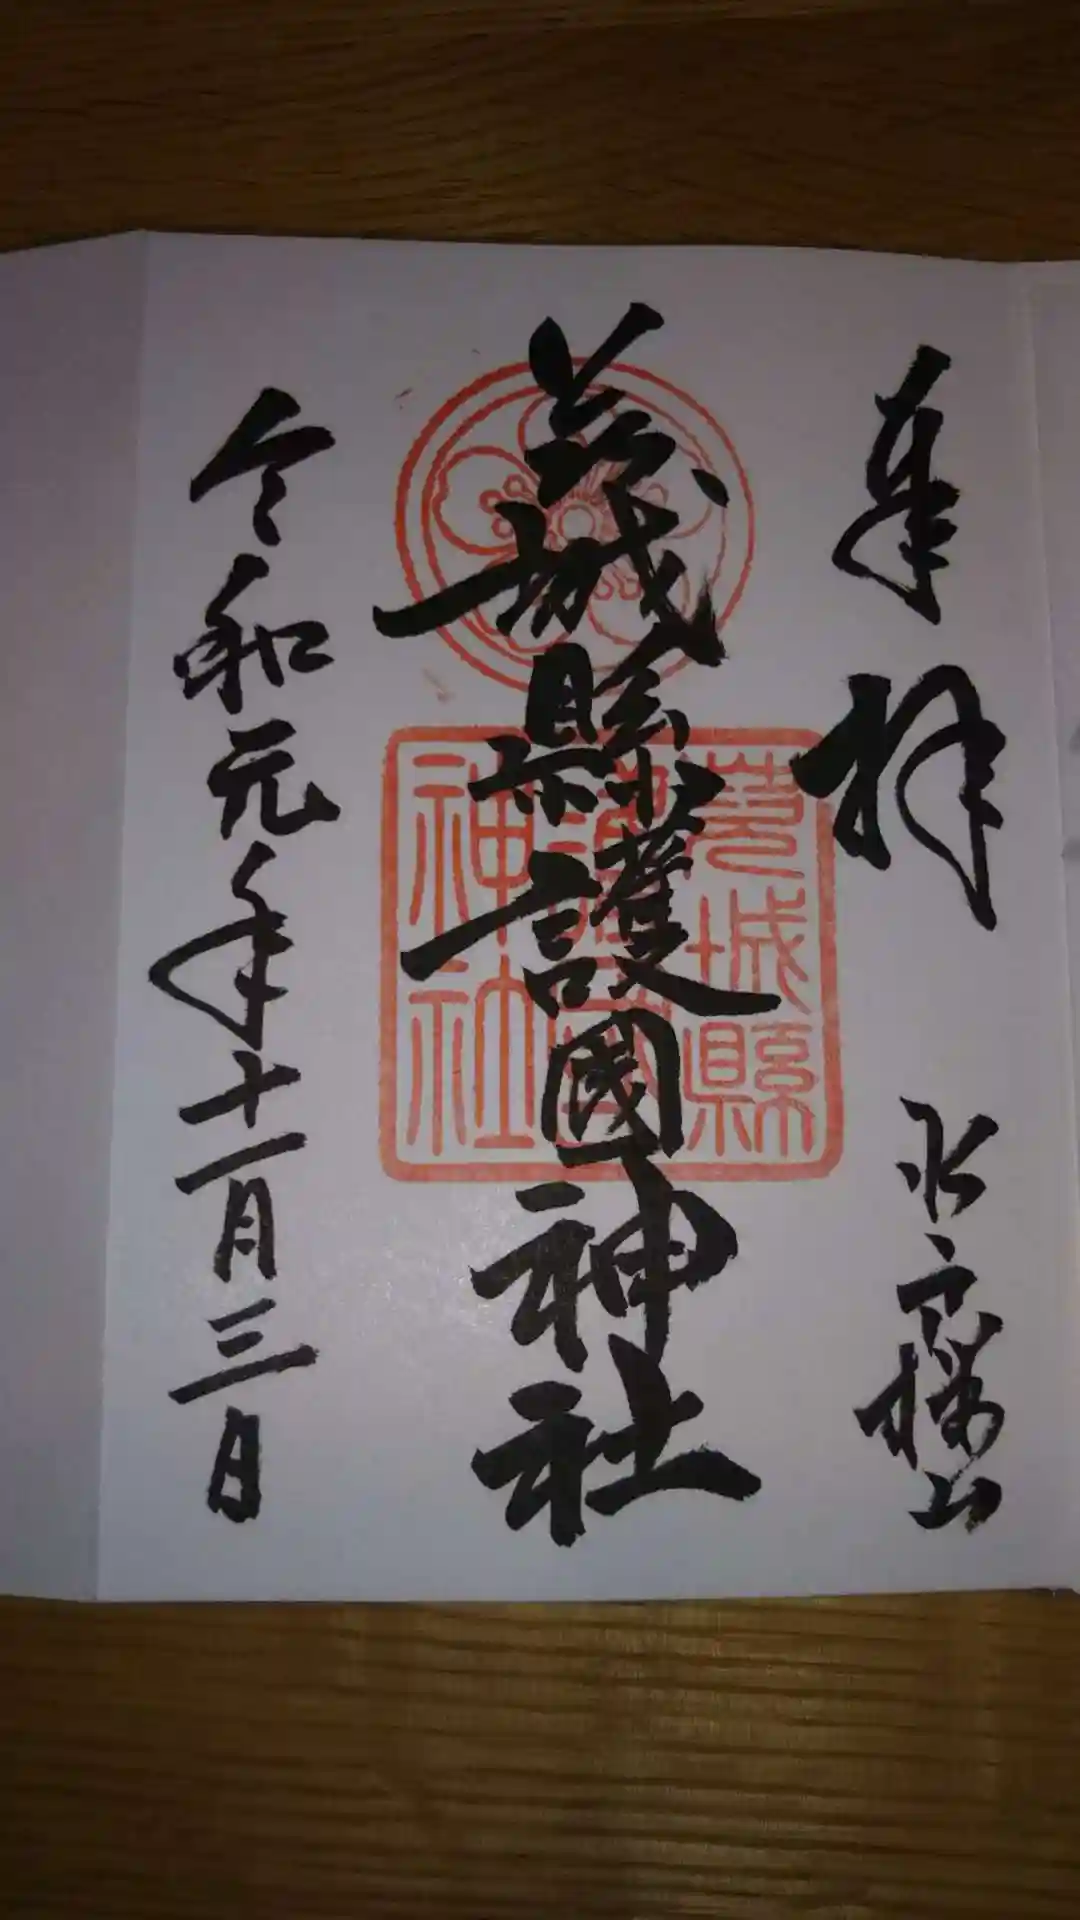 奉拝
水戸桜山
茨城縣護國神社
茨城縣
護國
神社
令和元年十一月三日